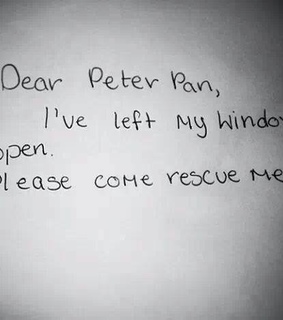 Dear Peter Pan,
I've left My Window
open.
Please come rescue Me